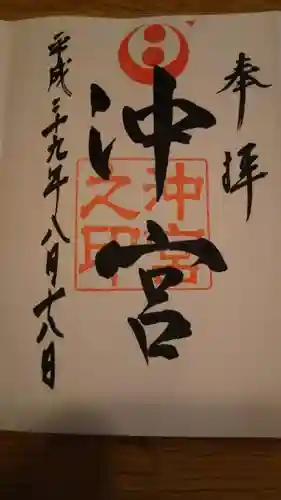 奉拝
沖宮
沖宮之印
平成二十九年八月十八日